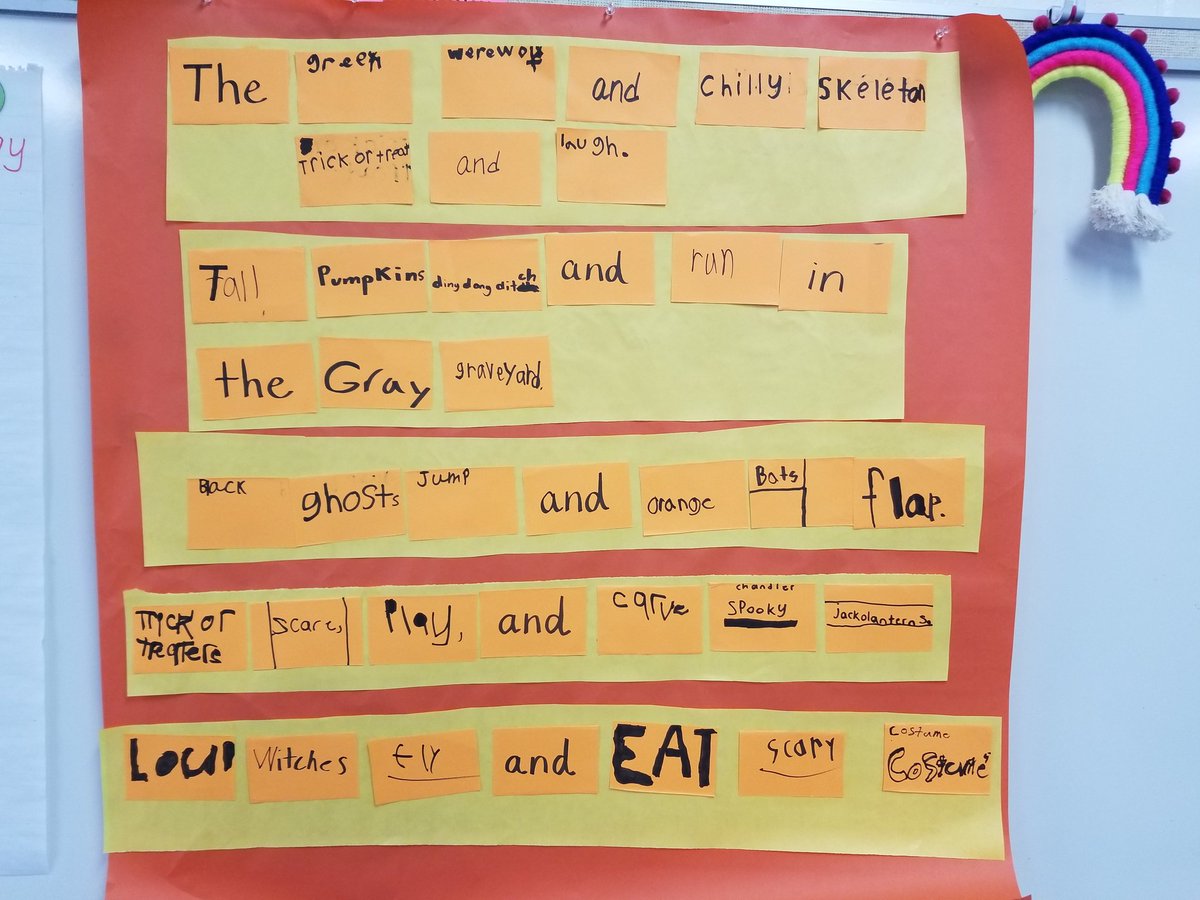 The green werewolf and Chilly Skeleton
Trick or treat and laugh.
Tall Pumpkins ding dong ditch and run in
the Gray graveyard.
Black ghosts Jump and orange Bats flap.
chandler
Trick or Treaters Scare, Play, and carve Spooky Jackolanterns.
Costume
Loud Witches fly and EAT scary Costume